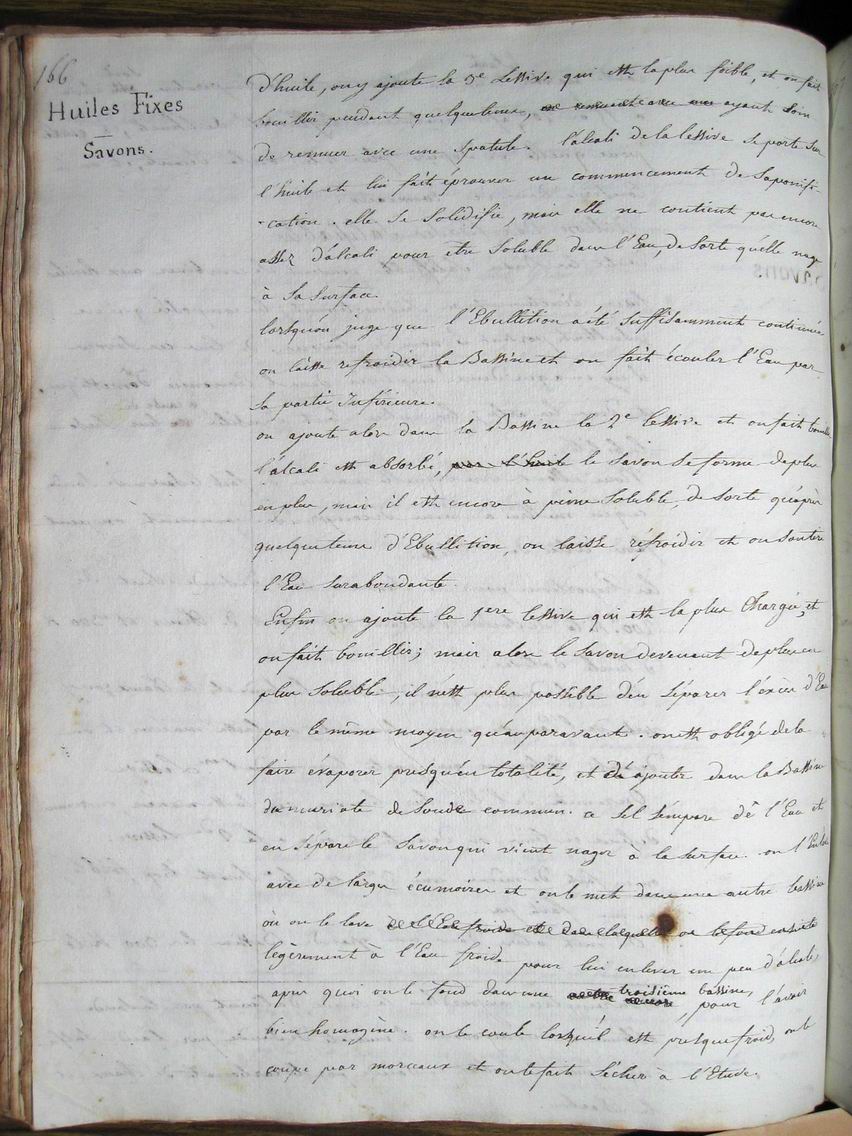 166
Huiles Fixes
Savons.
d'huile, on y ajoute la 3e Lessive qui est la plus foible, et on fait
bouillir pendant quelque tems, ayant Soin
de remuer avec une Spatule. l'alcali de la lessive se porte Sur
l'huile et lui fait éprouver un commencement de Saponifi-
-cation. elle se Solidifie, mais elle ne contient pas encore
assez d'alcali pour etre Soluble dans l'Eau, de Sorte qu'elle nage
à Sa Surface.
lorsqu'on juge que l'Ebullition a été Suffisamment continuée
on laisse refroidir la Bassine et on fait écouler l'Eau par
la partie Inférieure.
on ajoute alors dans la Bassine la 2e lessive et on fait bouillir
l'alcali est absorbé, par l'huile le savon se forme de plus
en plus, mais il est encore à peine Soluble, de Sorte qu'après
quelque tems d'Ebullition, on laisse réfroidir et on Soutire
l'Eau Surabondante.
Enfin on ajoute la 1ere lessive qui est la plus Chargée, et
on fait bouillir; mais alors le Savon devenant de plus en
plus Soluble, il n'est plus possible d'en Séparer l'éxcès d'Eau
par le même moyen qu'auparavant. on est obligé de la
faire évaporer presqu'en totalité, et d'ajouter dans la Bassine
du muriate de Soude commun. ce Sel S'empare de l'Eau et
en Sépare le Savon qui vient nager à la Surface. on l'Enlève
avec de larges écumoires et on le met dans une autre bassine
où on le lave de l'Eau froide et dans laquelle on le fond ensuite
legèrement à l'Eau froide pour lui enlever un peu d'alcali,
après quoi on le fond dans une troisième bassine, pour l'avoir
bien homogène. on le coule lorsqu'il est presque froid, on le
coupe par morceaux et on le fait Sécher à l'Etuve.